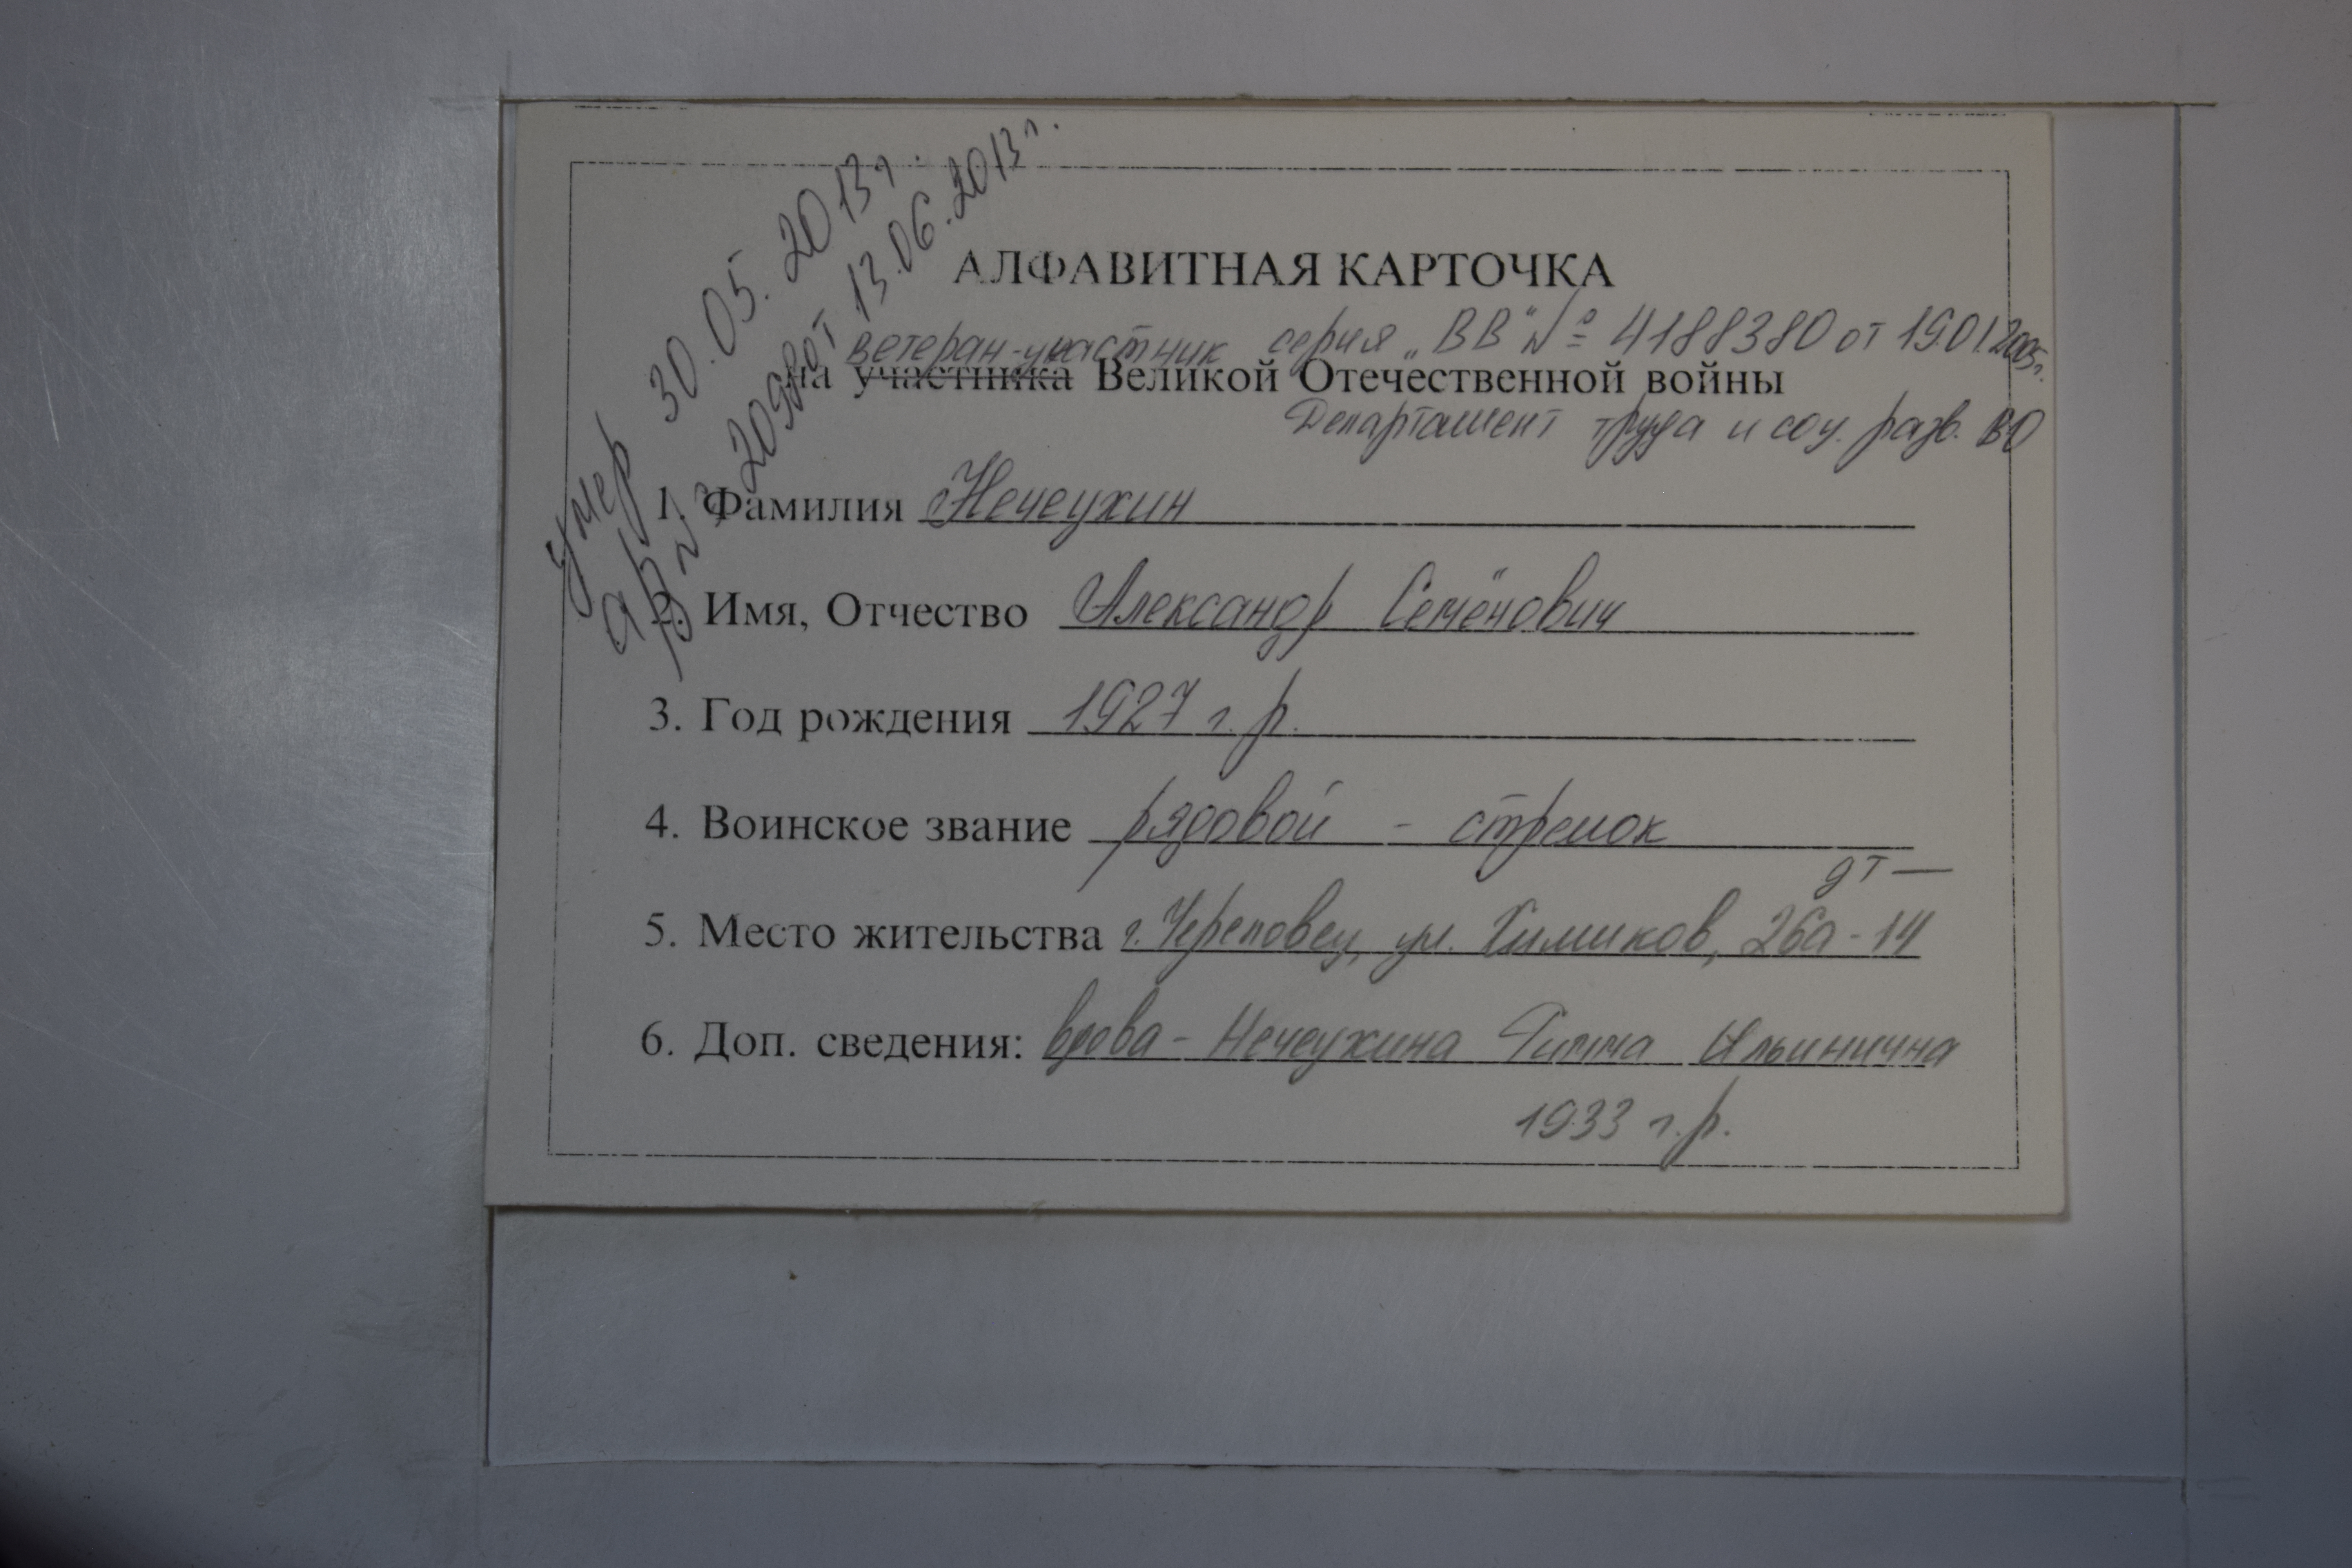 умер 30.05.2013г.
ар № 2098 от 13.06.2013г.
АЛФАВИТНАЯ КАРТОЧКА
ветеран-участник серия „ВВ" № 4188380 от 19.01.2005г.
на участника Великой Отечественной войны
Департамент труда и соц. разв. ВО
1. Фамилия Нечеухин
2. Имя, Отчество Александр Семёнович
3. Год рождения 1927 г.р.
4. Воинское звание рядовой - стрелок
дт —
5. Место жительства г. Череповец, ул. Химиков, 26а-14
6. Доп. сведения: вдова - Нечеухина Римма Ильинична
1933 г.р.